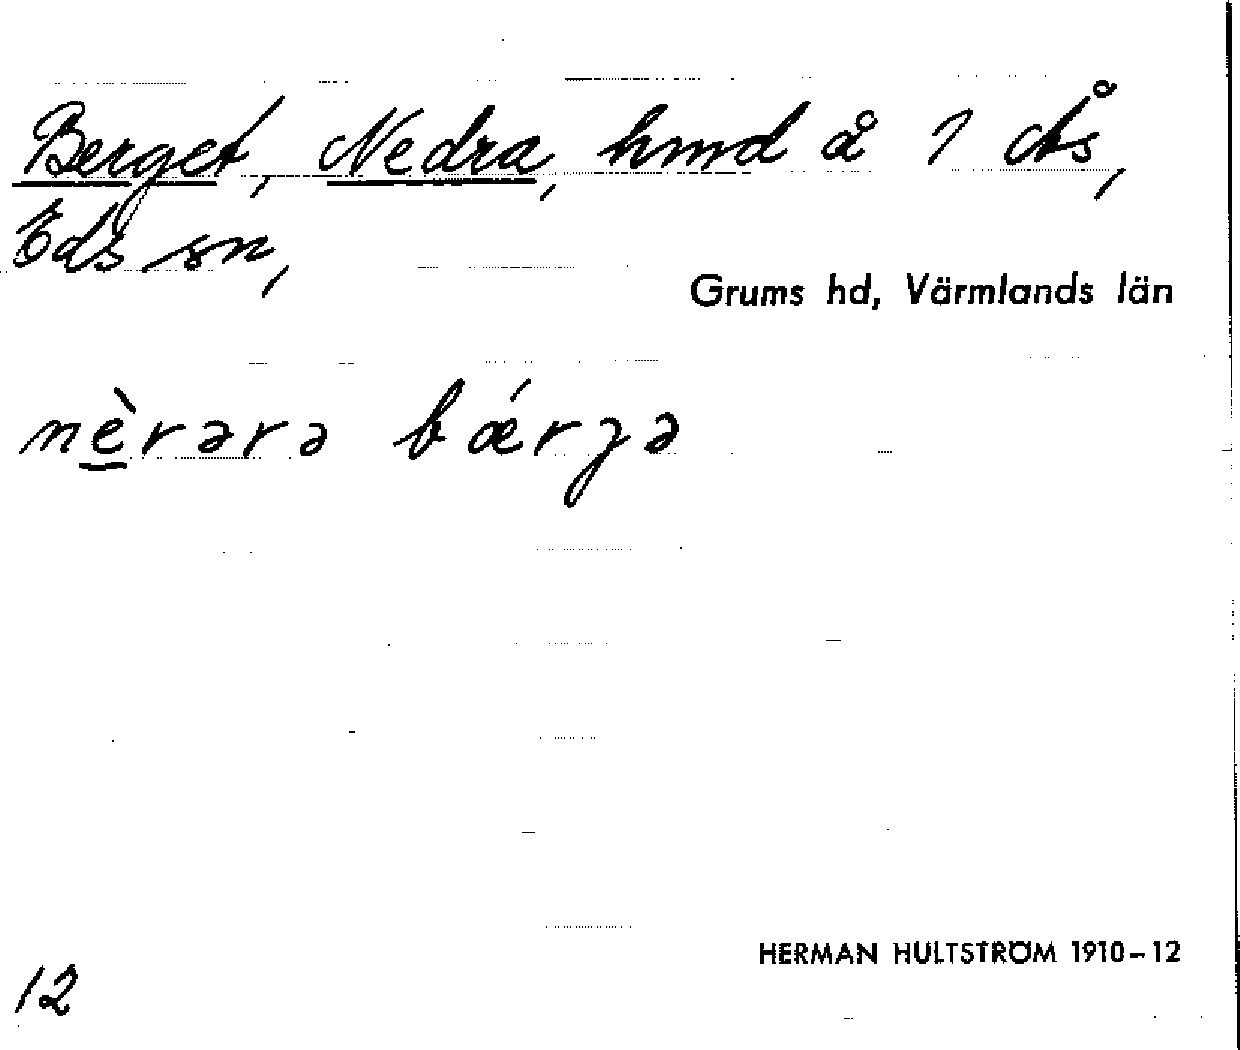 Berget, Nedra, hmd å 1 Ås,
Eds sn,
Grums hd, Värmlands län
nèrərə bǽrgə
HERMAN HULTSTRÖM 1910–12
12